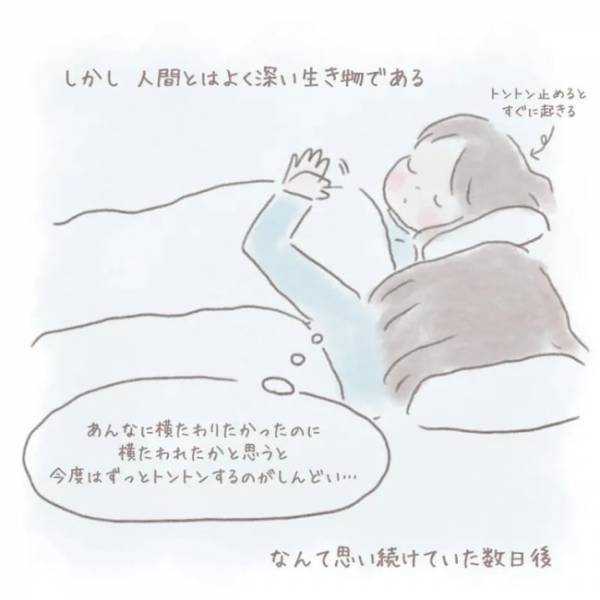 しかし 人間とはよく深い生き物である
トントン止めると
すぐに起きる
あんなに横たわりたかったのに
横たわれたかと思うと
今度はずっとトントンするのがしんどい…
なんて思い続けていた数日後